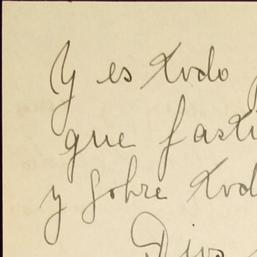 Y es todo
que fasti
y sobre tod